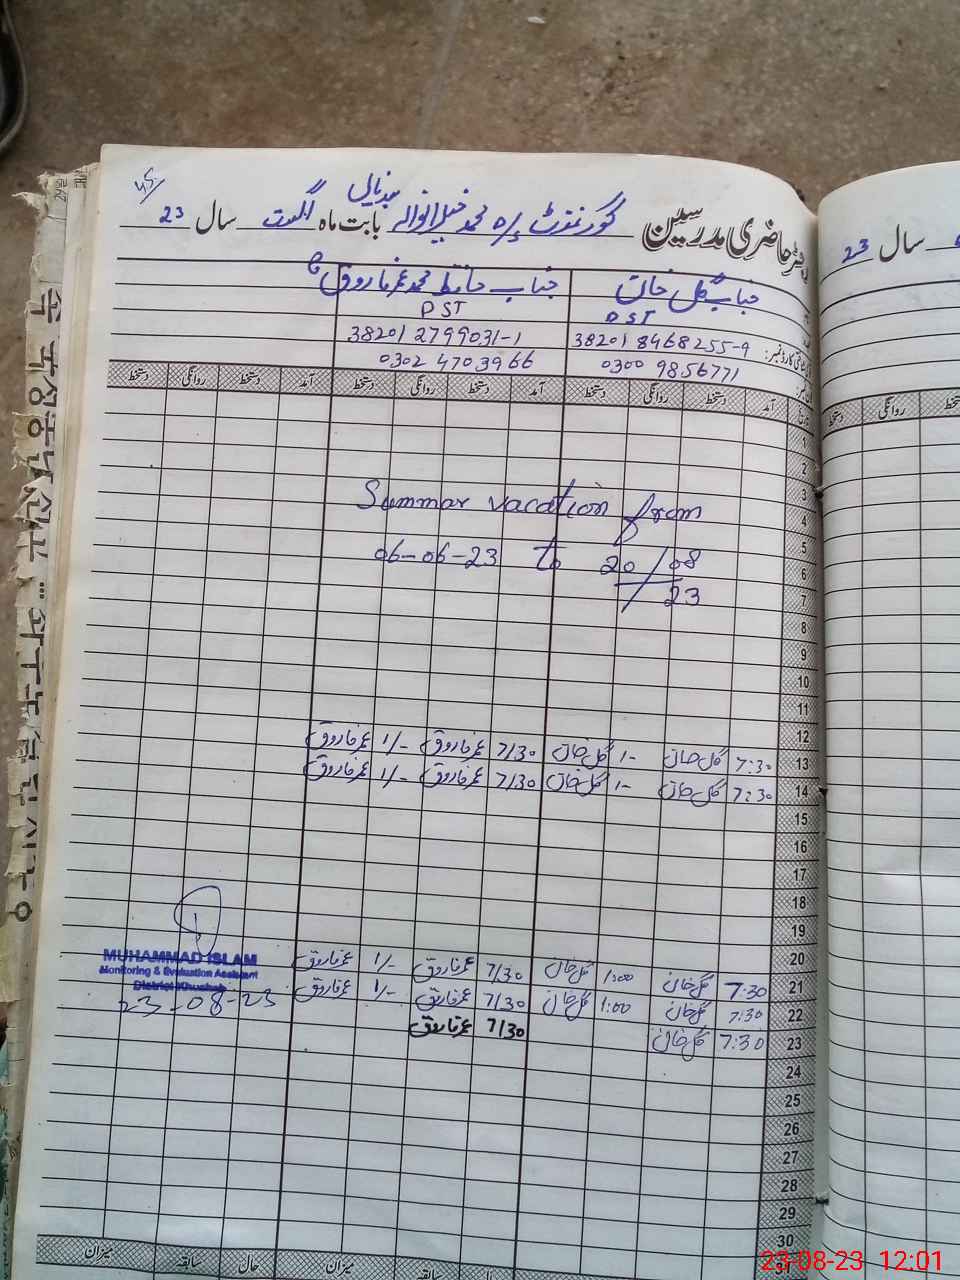 45
رجسٹر حاضری مدرسین گورنمنٹ پ/ہ محمد بابت ماہ اگست سال 23
سال 23
جناب گل خان
جناب حافظ محمد عمر فاروق
PST
PST
شناختی کارڈ نمبر: 38201 8468255-9
38201 2799031-1
0300 9856771
0302 4703966
آمد دستخط روانگی دستخط آمد دستخط روانگی دستخط آمد دستخط روانگی دستخط
روانگی دستخط
1
2
3
Summar vacation from
4
5
06-06-23 to 20/08
6
/23
7
8
9
10
11
12
13 7:30 گل خان 1- گل خان 7/30 عمر فاروق 1/- عمر فاروق
14 7:30 گل خان 1- گل خان 7/30 عمر فاروق 1/- عمر فاروق
15
16
17
18
19
20
MUHAMMAD ISLAM
Monitoring & Evaluation Assistant
District Khushab
23-08-23
21 7:30 گل خان 1:00 گل خان 7/30 عمر فاروق 1/- عمر فاروق
22 7:30 گل خان 1:00 گل خان 7/30 عمر فاروق 1/- عمر فاروق
23 7:30 گل خان 7/30 عمر فاروق
24
25
26
27
28
29
30
31
میزان حال سابقہ میزان
23-08-23 12:01